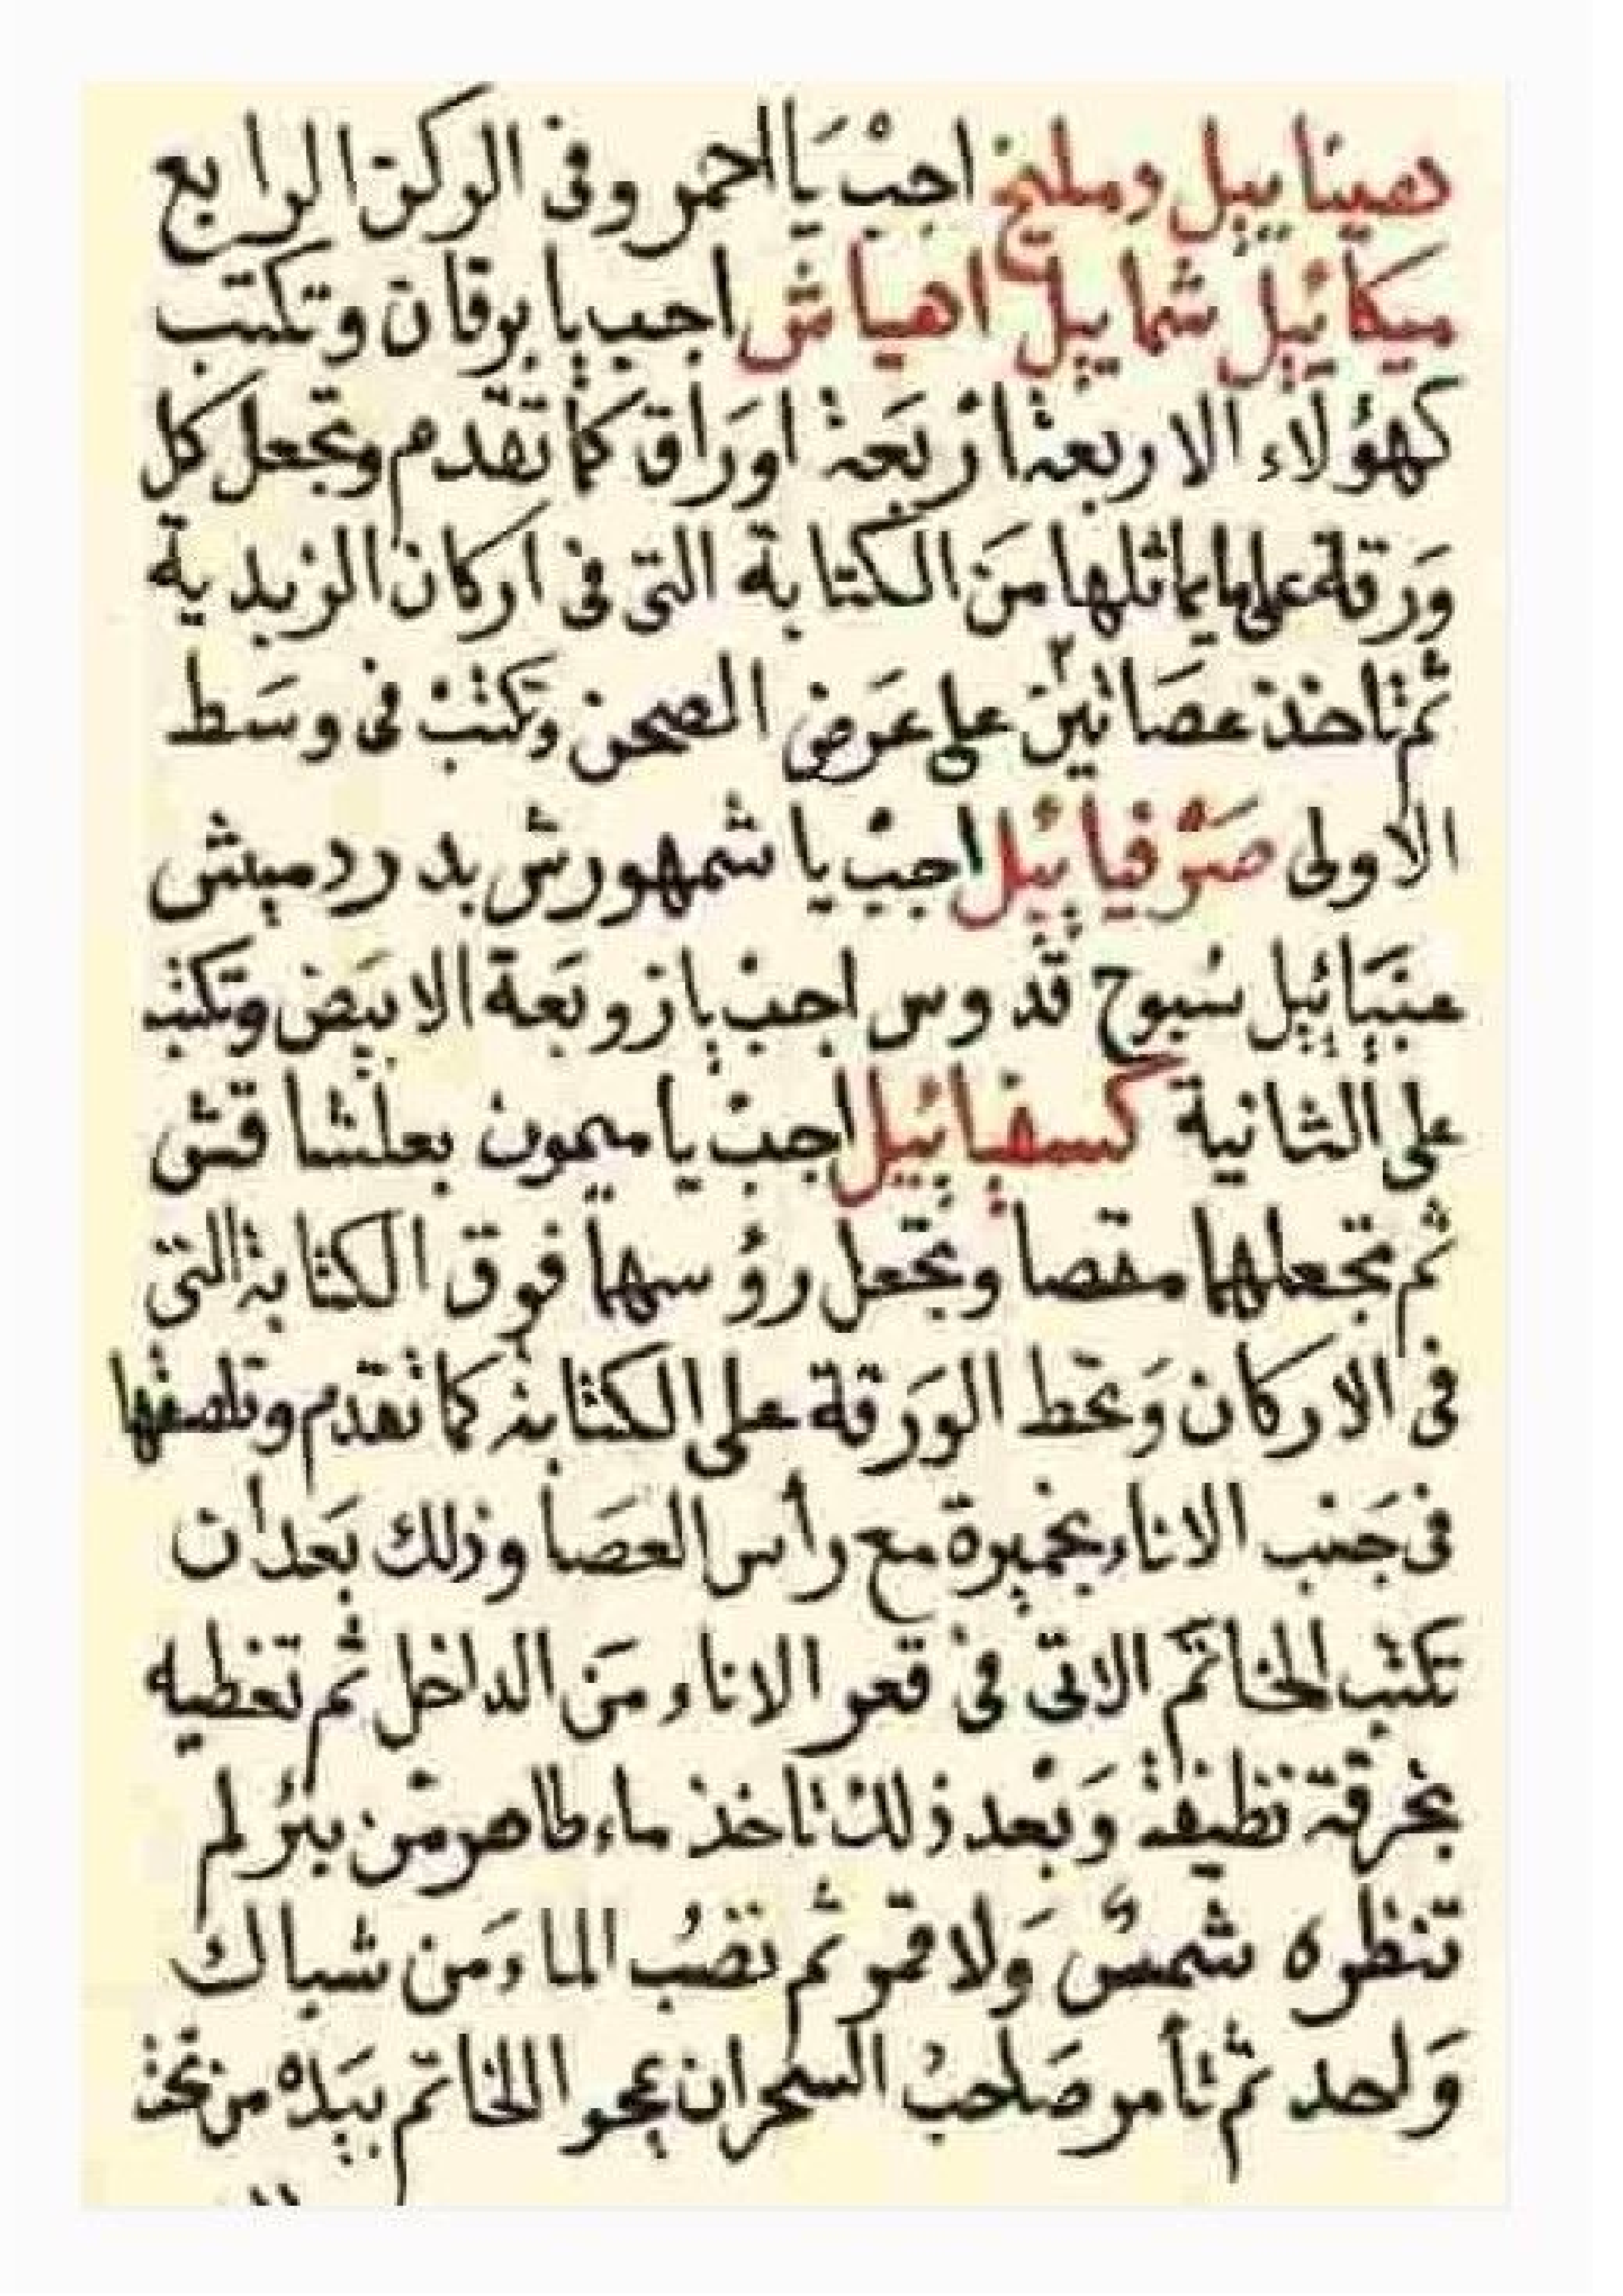 نصينا ييل وملیخ اجبْ يَا احمر وفى الركن الرابع
ميكائيل شماييل اهياش اجب يا برقان وتكتب
كهؤلاء الاربعة ازبَعة اورَاق كما تقدم وتجعل كل
وَرقة على ما يماثلها مَن الكتابة التى فى اركان الزبدية
ثم تاخذ عصاتين على عَرض الصحن وتكتب فى وسَط
الاولى صَرْفيائيل اجبْ يا شمهورش بد ردميش
عنيَائيل سُبوح قدوس اجبْ يا زوبَعة الابيَض وتكتب
على الثانية كسفيائيل اجبْ يا ميمون بعلشاقش
ثم تجعلها مقصا وتجعل رؤسها فوق الكتابة التى
فى الاركان وَتحط الوَرقة على الكتابة كما تقدم وتلصقها
فى جَنب الاناء بخميرة مع رأس العصَا وذلك بَعد ان
تكتب الخاتم الاتى فى قعر الاناء مَن الداخل ثم تغطيه
بخرقة نظيفة وَبعْد ذلك تاخذ ماء طاهر من بئر لم
تنظره شمس وَلا قمر ثم تصُب الماءَ من شباك
وَاحد ثم تأمر صَاحبْ السحر ان يمحو الخاتم بيَده من تحت